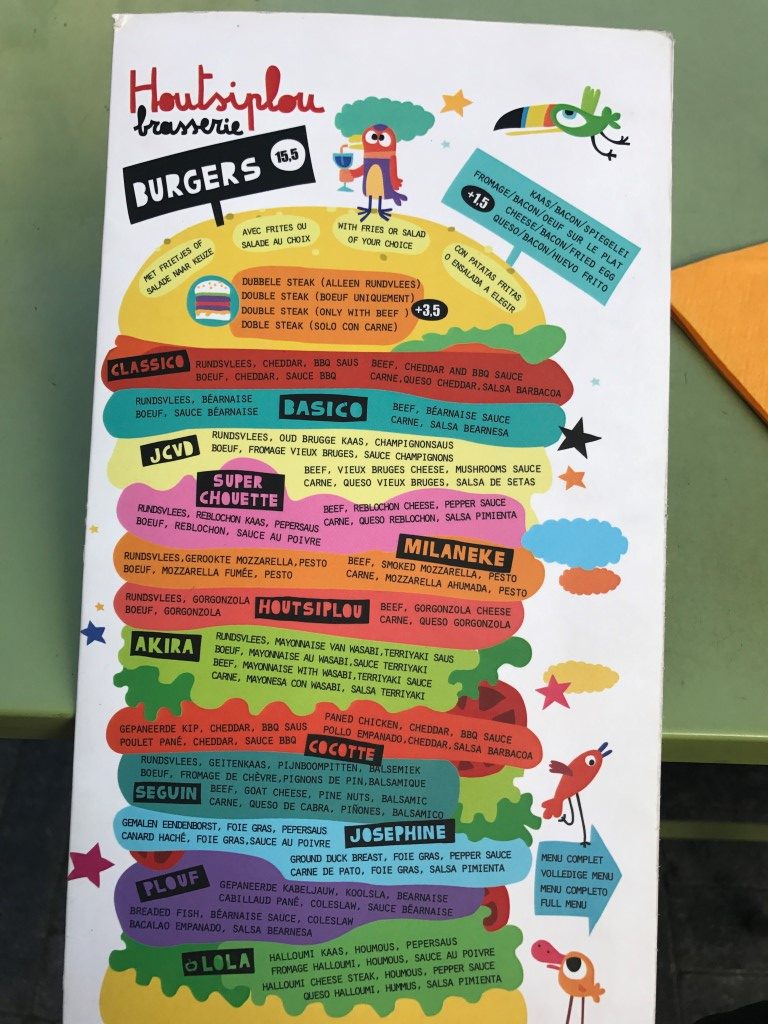 Houtsiplou
brasserie
BURGERS 15,5
KAAS/BACON/SPIEGELEI
FROMAGE/BACON/OEUF SUR LE PLAT
CHEESE/BACON/FRIED EGG
QUESO/BACON/HUEVO FRITO
+1,5
MET FRIETJES OF
SALADE NAAR KEUZE
AVEC FRITES OU
SALADE AU CHOIX
WITH FRIES OR SALAD
OF YOUR CHOICE
CON PATATAS FRITAS
O ENSALADA A ELEGIR
DUBBELE STEAK (ALLEEN RUNDVLEES)
DOUBLE STEAK (BOEUF UNIQUEMENT)
DOUBLE STEAK (ONLY WITH BEEF )
DOBLE STEAK (SOLO CON CARNE)
+3,5
CLASSICO
RUNDSVLEES, CHEDDAR, BBQ SAUS
BOEUF, CHEDDAR, SAUCE BBQ
BEEF, CHEDDAR AND BBQ SAUCE
CARNE,QUESO CHEDDAR,SALSA BARBACOA
RUNDSVLEES, BÉARNAISE
BOEUF, SAUCE BÉARNAISE
BASICO
BEEF, BÉARNAISE SAUCE
CARNE, SALSA BEARNESA
JCVD
RUNDSVLEES, OUD BRUGGE KAAS, CHAMPIGNONSAUS
BOEUF, FROMAGE VIEUX BRUGES, SAUCE CHAMPIGNONS
BEEF, VIEUX BRUGES CHEESE, MUSHROOMS SAUCE
CARNE, QUESO VIEUX BRUGES, SALSA DE SETAS
SUPER
CHOUETTE
RUNDSVLEES, REBLOCHON KAAS, PEPERSAUS
BOEUF, REBLOCHON, SAUCE AU POIVRE
BEEF, REBLOCHON CHEESE, PEPPER SAUCE
CARNE, QUESO REBLOCHON, SALSA PIMIENTA
MILANEKE
RUNDSVLEES,GEROOKTE MOZZARELLA,PESTO
BOEUF, MOZZARELLA FUMÉE, PESTO
BEEF, SMOKED MOZZARELLA, PESTO
CARNE, MOZZARELLA AHUMADA, PESTO
RUNDSVLEES, GORGONZOLA
BOEUF, GORGONZOLA
HOUTSIPLOU
BEEF, GORGONZOLA CHEESE
CARNE, QUESO GORGONZOLA
AKIRA
RUNDSVLEES, MAYONNAISE VAN WASABI,TERRIYAKI SAUS
BOEUF, MAYONNAISE AU WASABI,SAUCE TERRIYAKI
BEEF, MAYONNAISE WITH WASABI,TERRIYAKI SAUCE
CARNE, MAYONESA CON WASABI, SALSA TERRIYAKI
GEPANEERDE KIP, CHEDDAR, BBQ SAUS
POULET PANÉ, CHEDDAR, SAUCE BBQ
PANED CHICKEN, CHEDDAR, BBQ SAUCE
POLLO EMPANADO,CHEDDAR,SALSA BARBACOA
COCOTTE
RUNDSVLEES, GEITENKAAS, PIJNBOOMPITTEN, BALSEMIEK
BOEUF, FROMAGE DE CHÈVRE,PIGNONS DE PIN,BALSAMIQUE
SEGUIN
BEEF, GOAT CHEESE, PINE NUTS, BALSAMIC
CARNE, QUESO DE CABRA, PIÑONES, BALSAMICO
GEMALEN EENDENBORST, FOIE GRAS, PEPERSAUS
CANARD HACHÉ, FOIE GRAS,SAUCE AU POIVRE
JOSEPHINE
GROUND DUCK BREAST, FOIE GRAS, PEPPER SAUCE
CARNE DE PATO, FOIE GRAS, SALSA PIMIENTA
MENU COMPLET
VOLLEDIGE MENU
MENU COMPLETO
FULL MENU
PLOUF
GEPANEERDE KABELJAUW, KOOLSLA, BEARNAISE
CABILLAUD PANÉ, COLESLAW, SAUCE BÉARNAISE
BREADED FISH, BÉARNAISE SAUCE, COLESLAW
BACALAO EMPANADO, SALSA BEARNESA
LOLA
HALLOUMI KAAS, HOUMOUS, PEPERSAUS
FROMAGE HALLOUMI, HOUMOUS, SAUCE AU POIVRE
HALLOUMI CHEESE STEAK, HOUMOUS, PEPPER SAUCE
QUESO HALLOUMI, HUMMUS, SALSA PIMIENTA